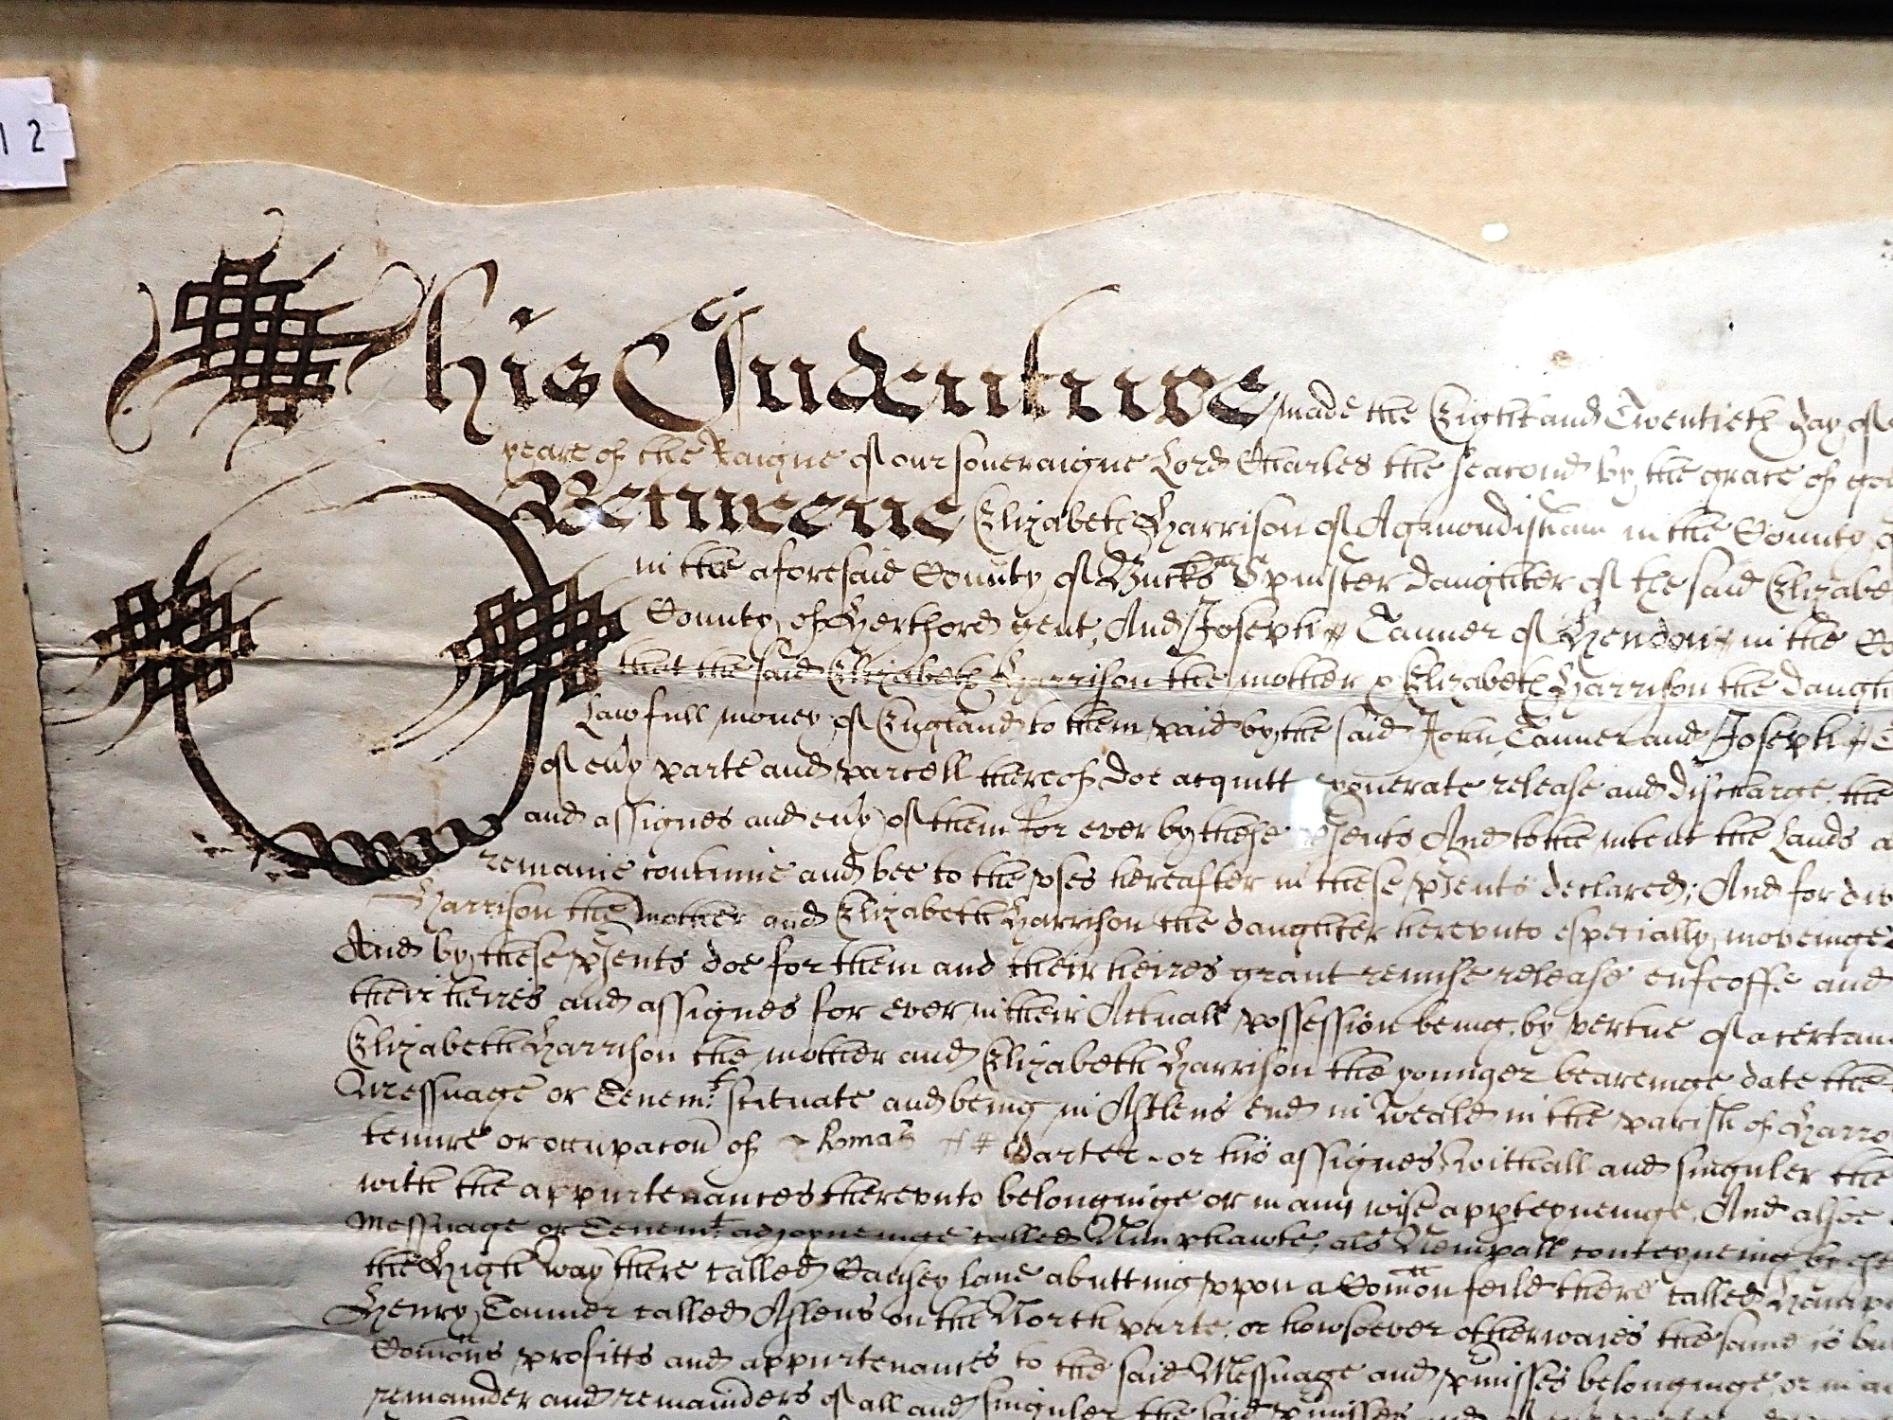 12
This Indenture made the Eight and Twentieth day of
yeare of the Raigne of our soveraigne Lord Charles the seacond by the grace of god
Betweene Elizabeth Harrison of Agmondisham in the County
in the aforesaid County of Bucks Spinster daughter of the said Elizabe
County of Hertford gent, And Joseph Tanner of Hendon in the Co
that the said Elizabeth Harrison the mother & Elizabeth Harrison the daught
Lawfull money of England to them paid by the said John Tanner and Joseph
of evy parte and parcell thereof doe acquitt exonerate release and discharge the
and assignes and evy of them for ever by these psents And to the intent the Lands
remaine continue and bee to the vses hereafter in these psents declared; And for div
Harrison the mother and Elizabeth Harrison the daughter herevnto especially moveinge
And by these psents doe for them and their heires grant remise release enfeoffe and
their heires and assignes for ever in their Actuall possession being by vertue of a certaine
Elizabeth Harrison the mother and Elizabeth Harrison the younger beareinge date the
Messuage or Tenemt scituate and being in Astlens end in Weald in the parish of Harro
tenure or occupacon of Carter or his assignes Withall and singuler the
with the appurtenances therevnto belonginge or in any wise apperteyneinge. And alsoe
Messuage or Tenemt adjoyneinge called als conteyneing
the High way there called lane abutting vppon a Comon feild there called
Henry Tanner called Astlens on the North parte or howsoever otherwaies the same is bu
Comons profitts and appurtenances to the said Messuage and pmisses belonginge or in
remainder and remainders of all and singuler the said pmisses and